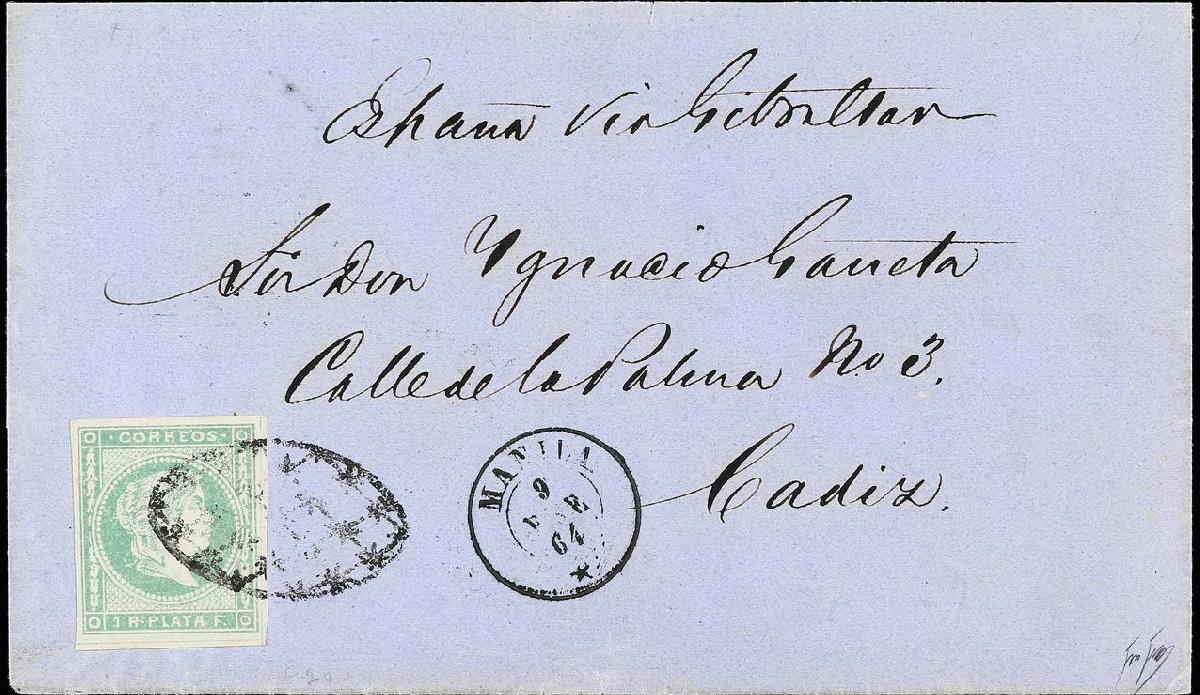 España via Gibraltar
Sor Don Ygnacio Garreta
Calle de la Palma No 3.
Cadiz.
CORREOS
1 R. PLATA F.
MANILA
9 E
64